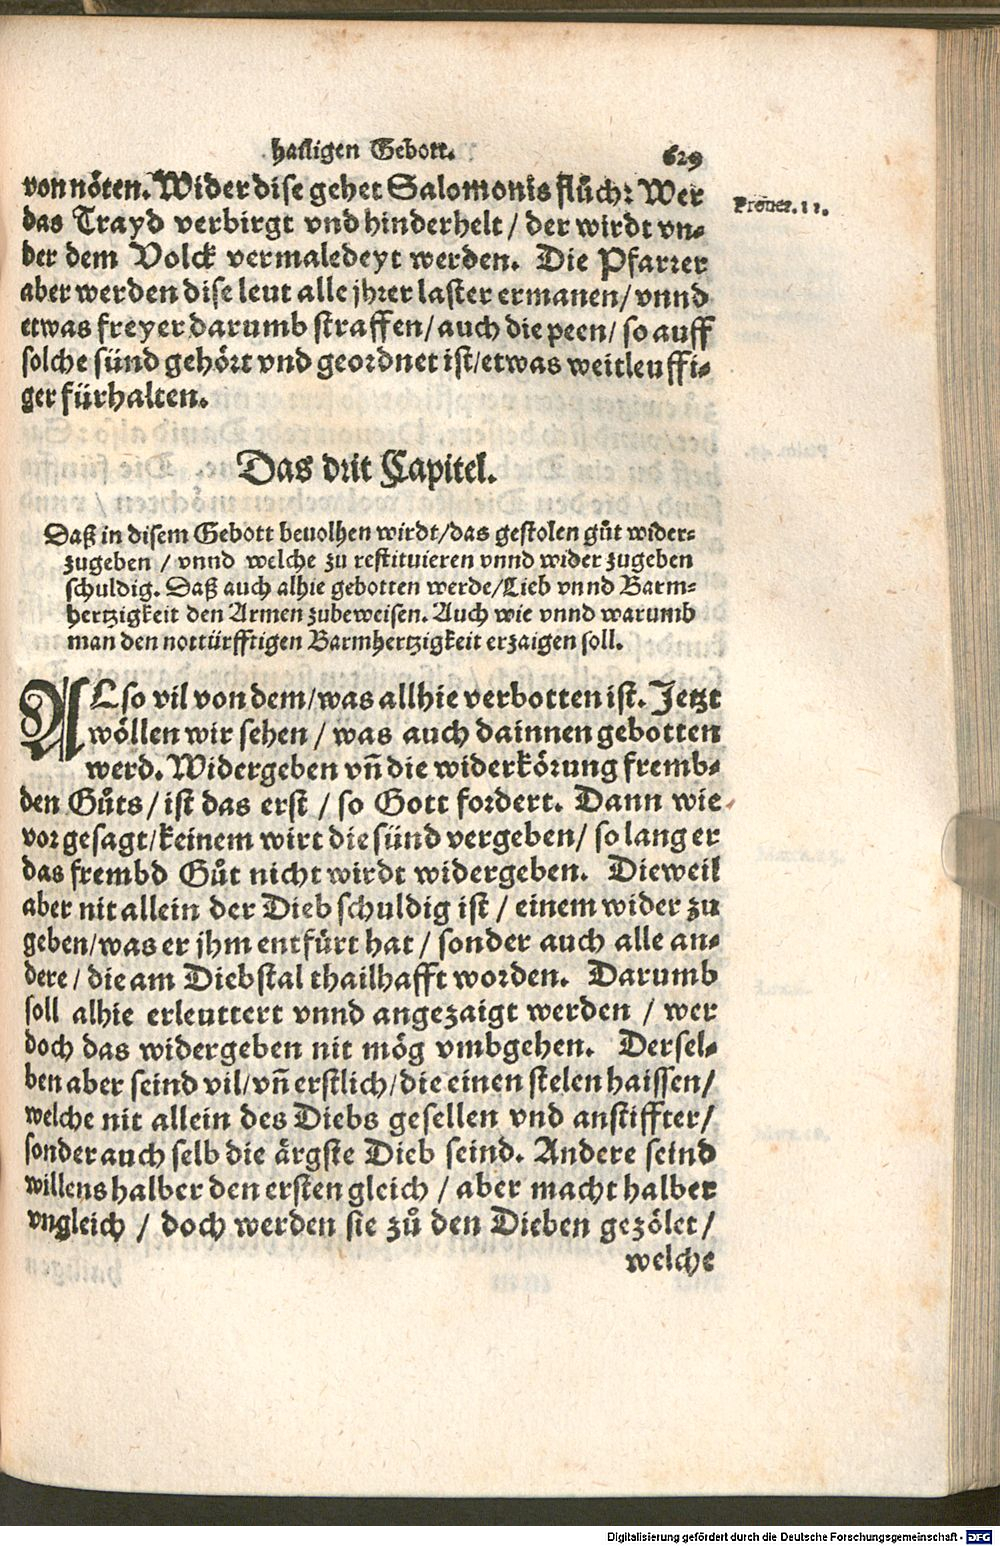 hailigen Gebott. 629
von nöten. Wider dise gehet Salomonis flůch: Wer
Prouer. 11.
das Trayd verbirgt vnd hinderhelt / der wirdt vn-
der dem Volck vermaledeyt werden. Die Pfarrer
aber werden dise leut alle jhrer laster ermanen / vnnd
etwas freyer darumb straffen / auch die peen / so auff
solche sünd gehört vnd geordnet ist / etwas weitleuffi-
ger fürhalten.
Das drit Capitel.
Daß in disem Gebott beuolhen wirdt / das gestolen gůt wider-
zugeben / vnnd welche zu restituieren vnnd wider zugeben
schuldig. Daß auch alhie gebotten werde / Lieb vnnd Barm-
hertzigkeit den Armen zubeweisen. Auch wie vnnd warumb
man den nottürfftigen Barmhertzigkeit erzaigen soll.
ALso vil von dem / was allhie verbotten ist. Jetzt
wöllen wir sehen / was auch dainnen gebotten
werd. Widergeben vn̄ die widerkörung fremb-
den Gůts / ist das erst / so Gott fordert. Dann wie
vor gesagt / keinem wirt die sünd vergeben / so lang er
das frembd Gůt nicht wirdt widergeben. Dieweil
aber nit allein der Dieb schuldig ist / einem wider zu
geben / was er jhm entfürt hat / sonder auch alle an-
dere / die am Diebstal thailhafft worden. Darumb
soll alhie erleuttert vnnd angezaigt werden / wer
doch das widergeben nit mög vmbgehen. Dersel-
ben aber seind vil / vn̄ erstlich / die einen stelen haissen /
welche nit allein des Diebs gesellen vnd anstiffter /
sonder auch selb die ärgste Dieb seind. Andere seind
willens halber den ersten gleich / aber macht halber
vngleich / doch werden sie zů den Dieben gezölet /
welche
Digitalisierung gefördert durch die Deutsche Forschungsgemeinschaft - DFG